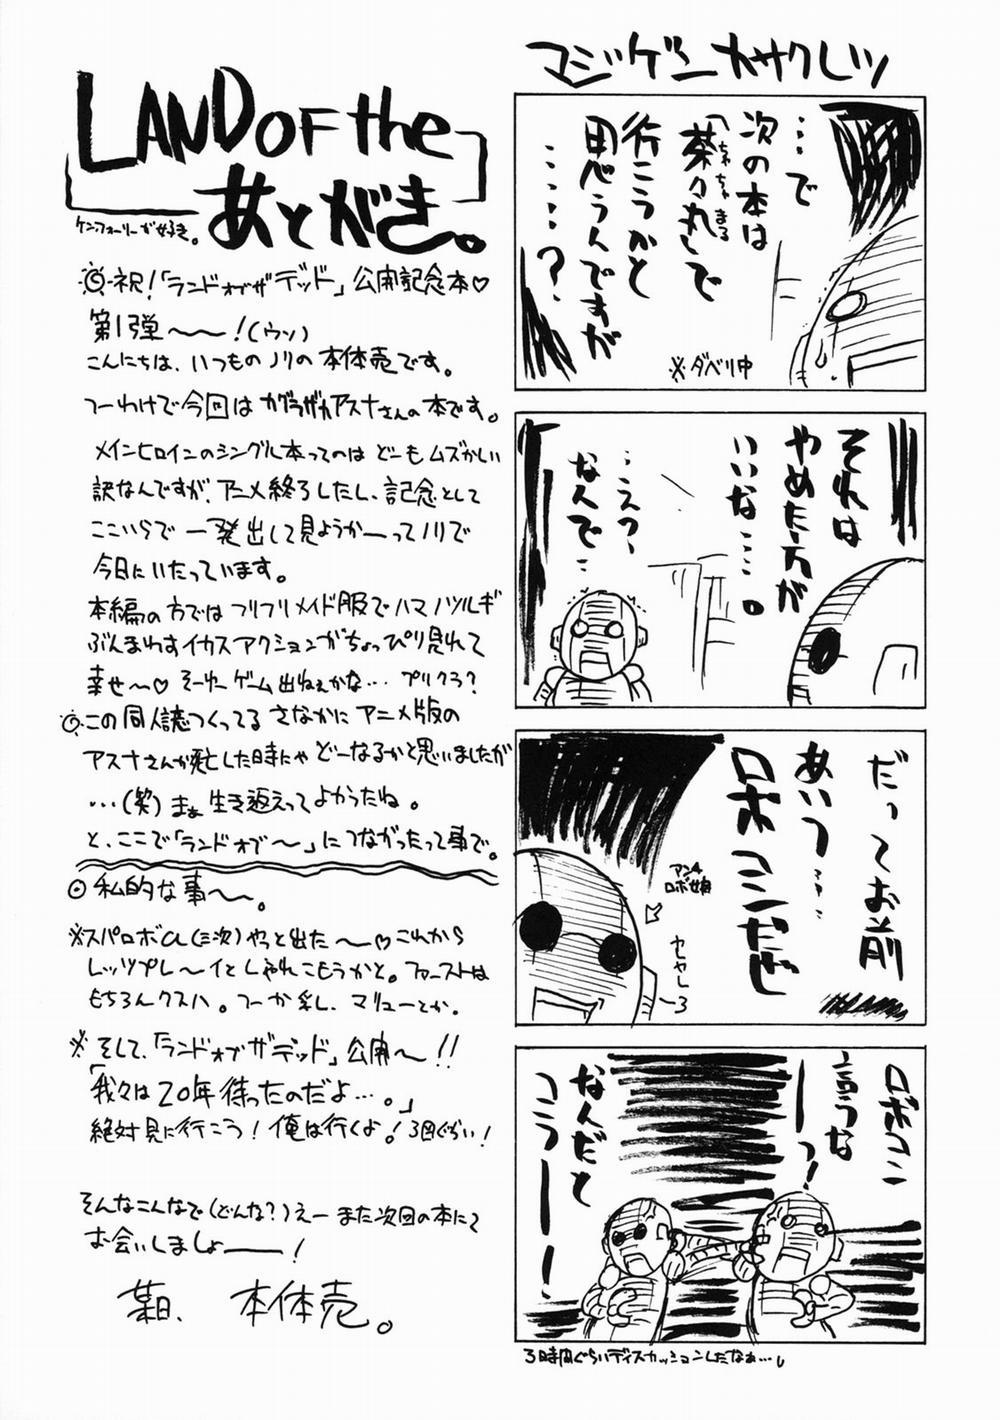 LAND OF the
あとがき。
ケン・フォーリーが好き。
◎祝！「ランドオブザデッド」公開記念本♡
第1弾〜〜！(ウソ)
こんにちは、いつものノリの本体売です。
つーわけで今回はカグラザカアスナさんの本です。
メインヒロインのシングル本ってのはどーもムズかしい
訳なんですが、アニメ終了したし、記念として
ここいらで一発出して見ようかーってノリで
今日にいたっています。
本編の方ではフリフリメイド服でハマノツルギ
ぶんまわすイカスアクションがちょっぴり見れて
幸せ〜♡ そーゆーゲーム出ねぇかな… プリクラ？
◎この同人誌つくってるさなかにアニメ版の
アスナさんが死亡した時にゃどーなるかと思いましたが
…(笑)まぁ生き返えってよかったね。
と、ここで「ランドオブ〜」につながったって事で。
◎私的な事〜。
※スパロボα(三次)やっと出た〜♡これから
レッツプレ〜イとしゃれこもうかと。ファーストは
もちろんクスハ。つーか乳。マリューとか。
※そして、「ランドオブザデッド」公開〜!!
「我々は20年待ったのだよ…。」
絶対見に行こう！俺は行くよ！3回ぐらい！
そんなこんなで(どんな？)えーまた次回の本にて
お会いしましょーー！
某日、 本体売。
マジゲンカサクレツ
…で
次の本は
「茶々丸」で
ちゃちゃまる
行こうかと
思うんですが
………？
※ダベリ中
それは
やめた方が
いいな…。
…えっ、
なんで…
だってお前
あいつ…
ロボコンだぜ
アンチ
ロボ娘
セヤしー3
ロボコン
言うな
ーーっ！
なんだと
コラーー！
3時間ぐらいディスカッションしたなぁ…。